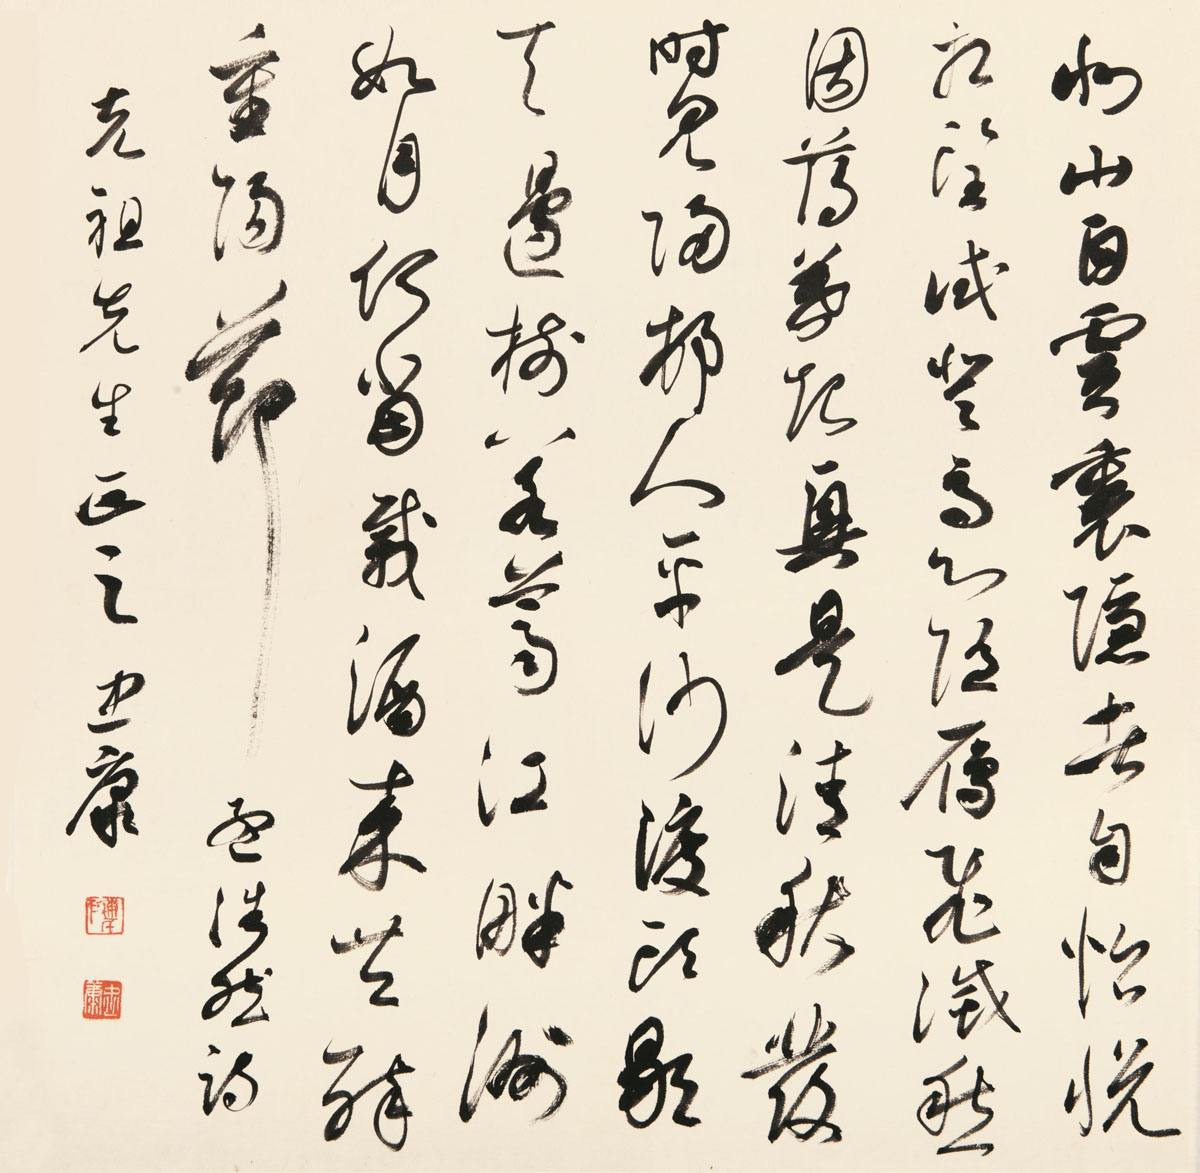 北山白雲裏隱者自怡悅
相望試登高心隨雁飛滅愁
因薄暮起興是清秋發
時見歸邨人平沙渡頭歇
天邊樹若薺江畔洲
如月何當載酒來共醉
重陽節 孟浩然詩
克祖先生正之 忠康